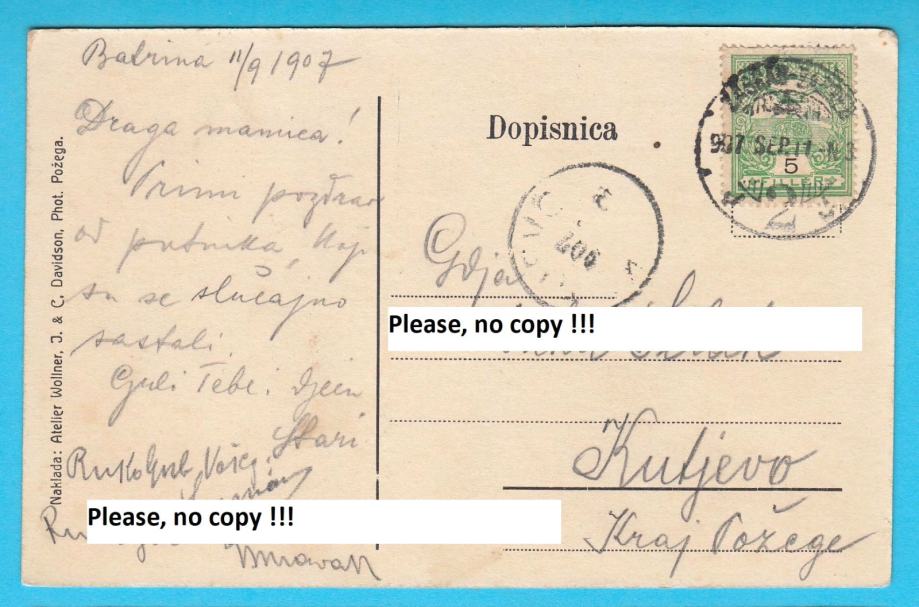 Batrina 11/9 1907
Draga mamica!
Primi pozdrav
od putnika, koji
su se slučajno
sastali.
Ljubi Tebe i djecu
Stari
Rukoljub
Naklada: Atelier Wollner, J. & C. Davidson, Phot. Požega.
Dopisnica
907 SEP 11
5
FILLER
2
KUTJEVO
907
Gdja
Please, no copy !!!
Kutjevo
Kraj Požege
Please, no copy !!!